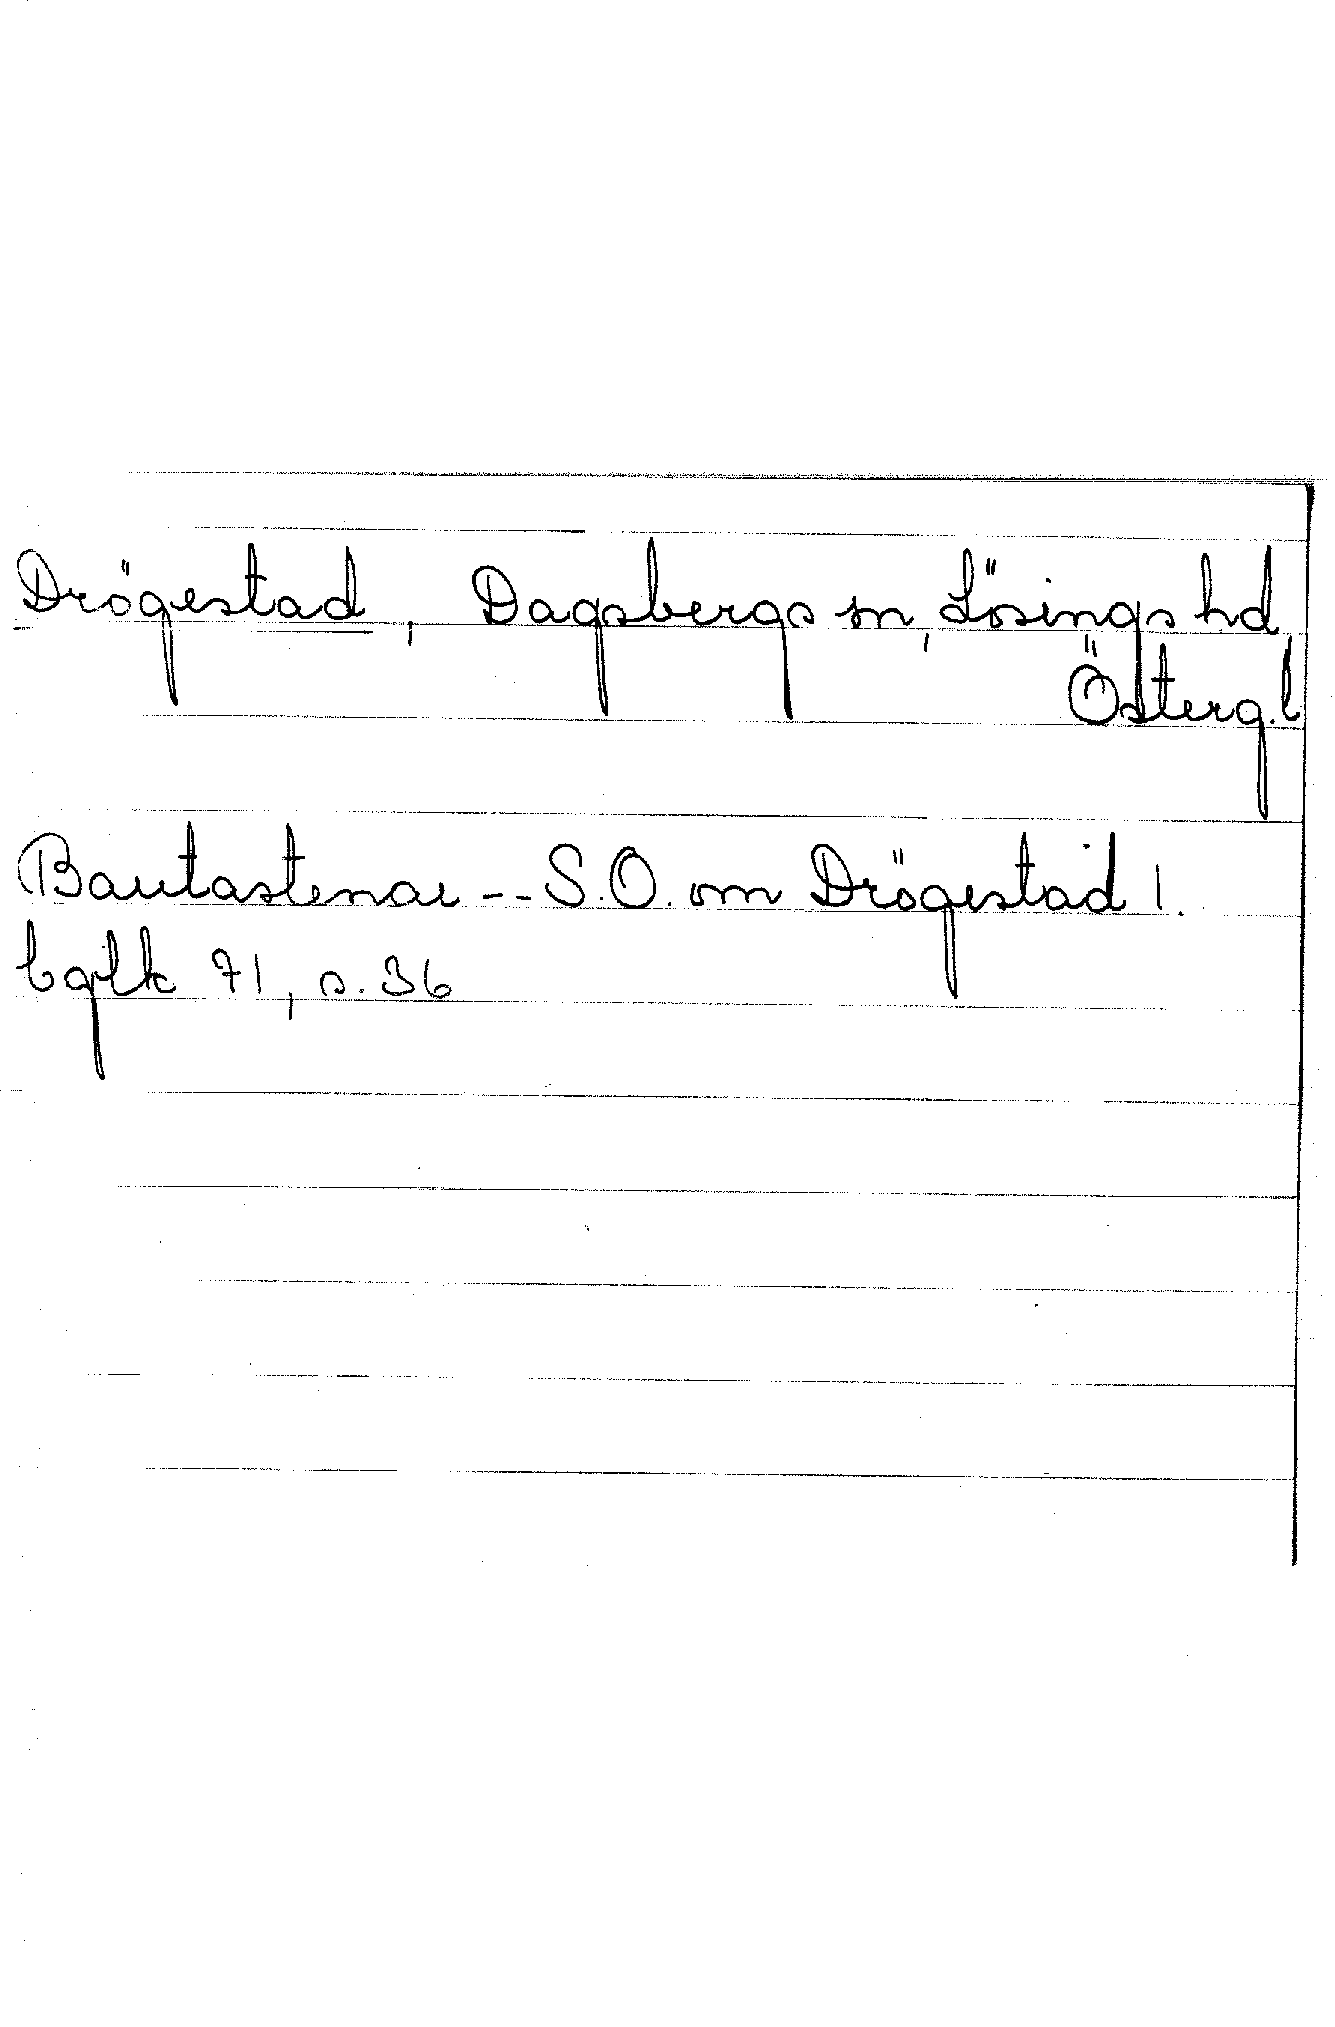 Drögestad, Dagsbergs sn, Lösings hd
Österg.l
Bautastenar -- S.O. om Drögestad 1.
bglk 71, s. 36